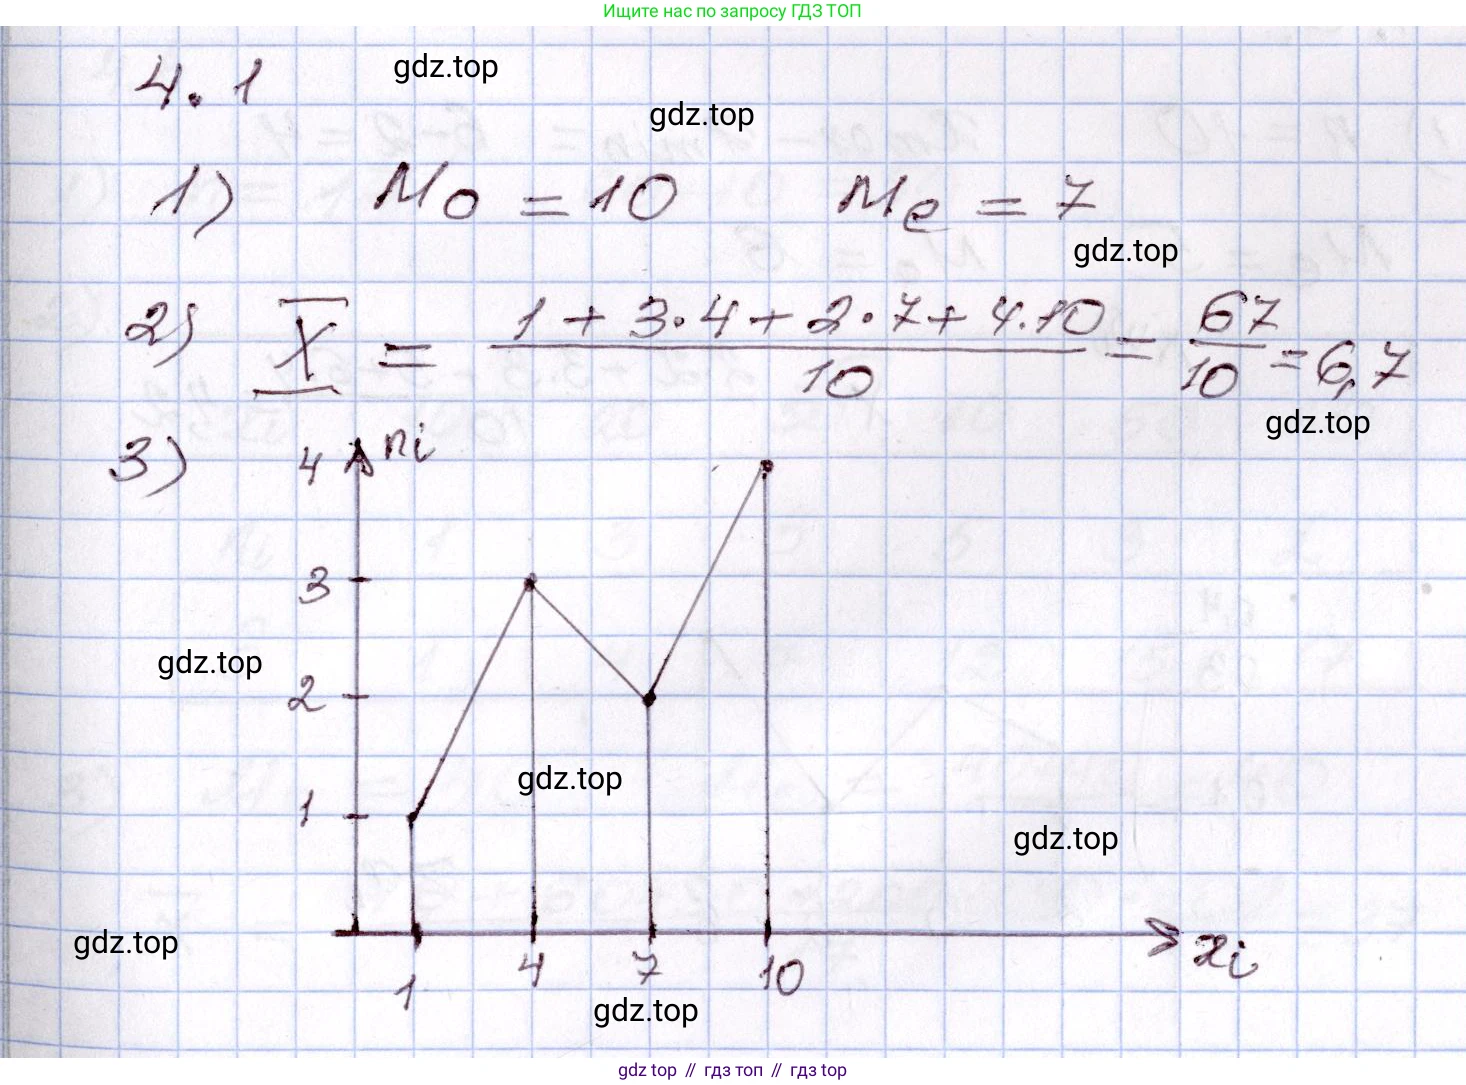 Ищите нас по запросу ГДЗ ТОП
4.1
gdz.top
gdz.top
1) Mo = 10 Me = 7
gdz.top
2) X̅ = (1 + 3·4 + 2·7 + 4·10)/10 = 67/10 = 6,7
gdz.top
3)
4 ni
3
gdz.top
2
gdz.top
1
gdz.top
gdz.top
xi
1 4 7 10
gdz.top
gdz top // гдз топ // гдз top